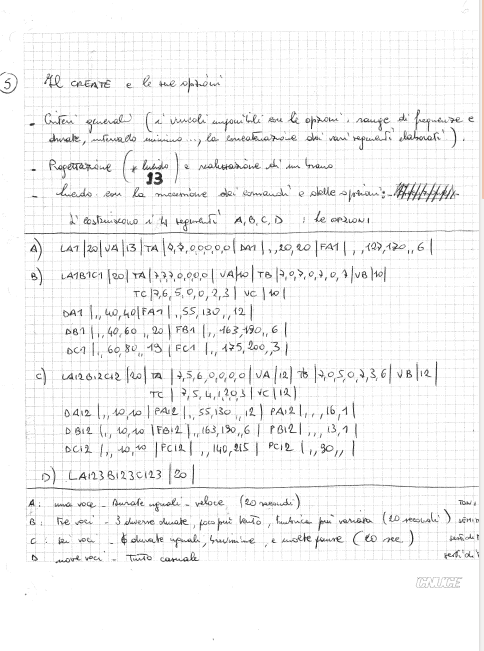 5
Il CREATE e le sue opzioni
- Criteri generali (i vincoli imponibili con le opzioni, range di frequenze e
durate, intervallo minimo..., la concatenazione dei vari segmenti elaborati).
- Progettazione (+ lucido) e realizzazione di un brano
13
- lucido con la successione dei comandi e delle opzioni:
Si costruiscono i 4 segmenti A, B, C, D : le OPZIONI
A) LA1 |20| VA |13| TA |7,7,0,0,0,0,0| DA1 |,,20,20| FA1 |,,127,170,,6|
B) LA1B1C1 |20| TA |7,7,7,0,0,0,0| VA |10| TB |7,0,7,0,7,0,7| VB |10|
TC |7,6,5,0,0,2,3| VC |10|
DA1 |,,40,40| FA1 |,,55,130,,12|
DB1 |,,40,60,,20| FB1 |,,163,190,,6|
DC1 |,,60,80,,19| FC1 |,,175,200,,3|
C) LA12B12C12 |20| TA |7,5,6,0,0,0,0| VA |12| TB |7,0,5,0,7,3,6| VB |12|
TC |7,5,4,1,2,0,3| VC |12|
DA12 |,,10,10| FA12 |,,55,130,,12| PA12 |,,,16,1|
DB12 |,,10,10| FB12 |,,163,190,,6| PB12 |,,,13,1|
DC12 |,,10,10| FC12 |,,140,215| PC12 |,,90,,|
D) LA123B123C123 |20|
A: una voce - Durate uguali - veloce (20 secondi)
B: Tre voci - 3 diverse durate, poco più lento, timbrica più variata (20 secondi)
C: sei voci - 6 durate uguali, brevissime, e molte pause (20 sec.)
D nove voci - Tutto casuale
CNUCE